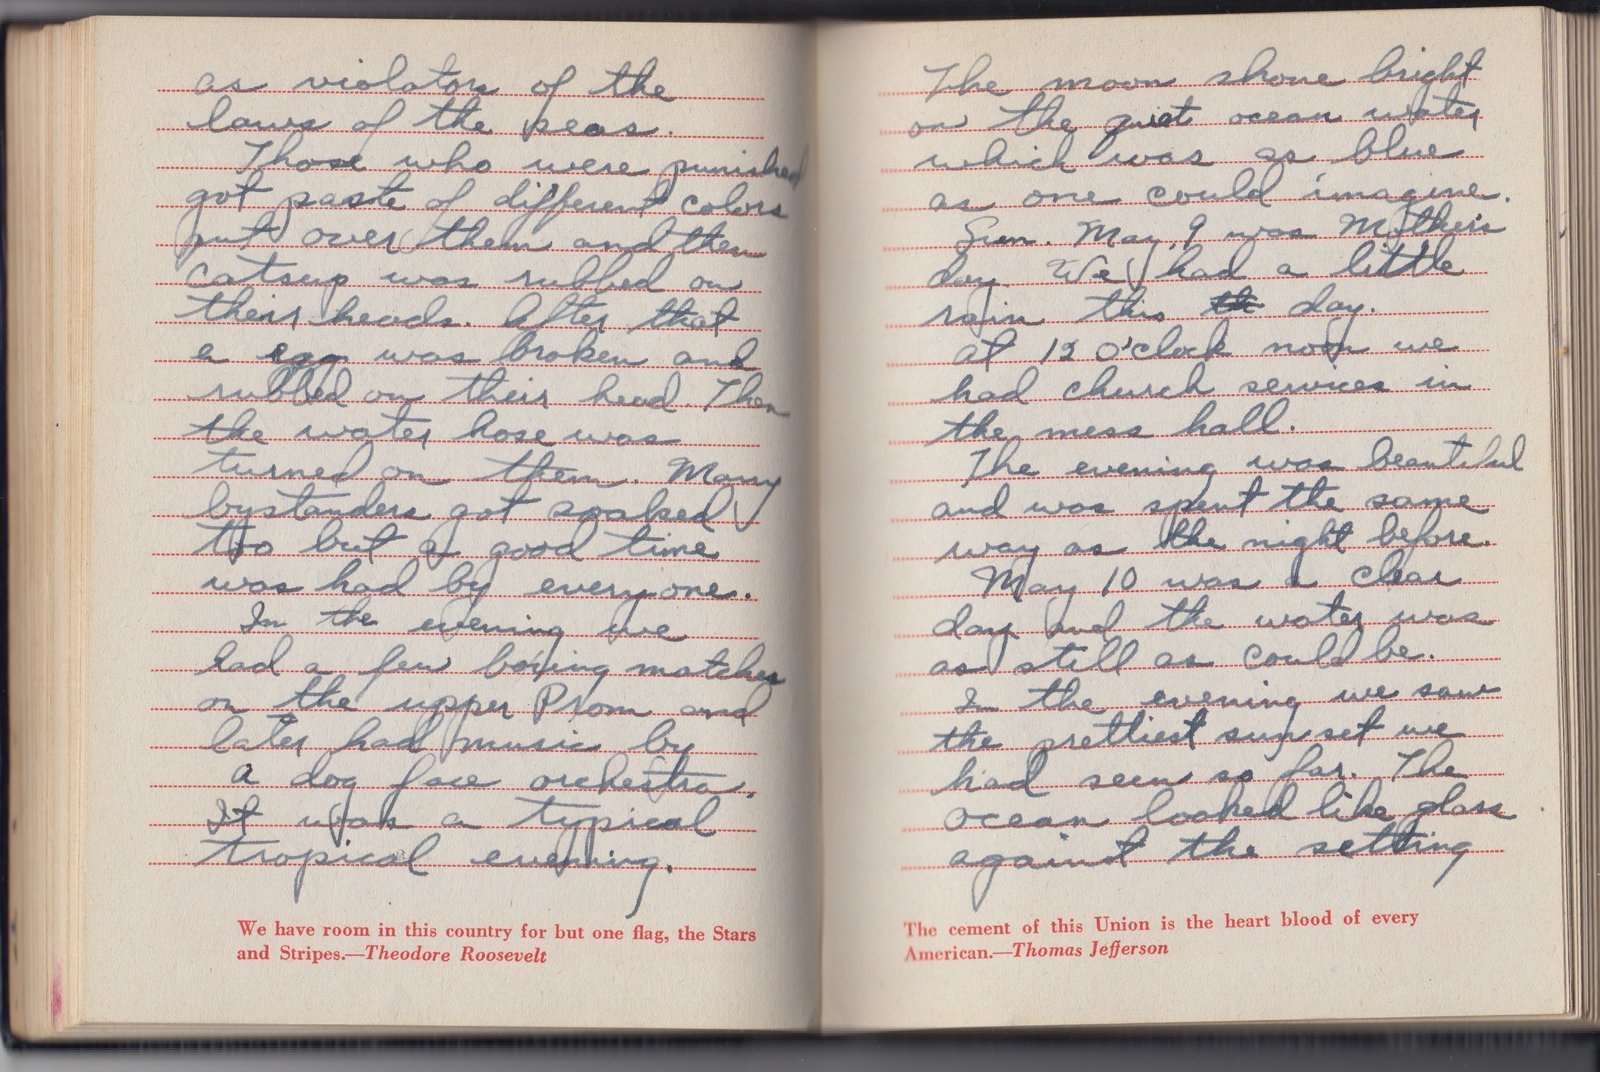 as violators of the
laws of the seas.
Those who were punished
got paste of different colors
put over them and then
catsup was rubbed on
their heads. After that
a egg was broken and
rubbed on their head. Then
the water hose was
turned on them. Many
bystanders got soaked
too but a good time
was had by everyone.
In the evening we
had a few boxing matches
on the upper Prom and
later had music by
a dog face orchestra.
It was a typical
tropical evening.
We have room in this country for but one flag, the Stars
and Stripes.—Theodore Roosevelt
The moon shone bright
on the quiet ocean water
which was as blue
as one could imagine.
Sun. May 9 was Mother's
day. We had a little
rain this th day.
at 12 O'clock noon we
had church services in
the mess hall.
The evening was beautiful
and was spent the same
way as the night before.
May 10 was a clear
day and the water was
as still as could be.
In the evening we saw
the prettiest sun set we
had seen so far. The
ocean looked like glass
against the setting
The cement of this Union is the heart blood of every
American.—Thomas Jefferson